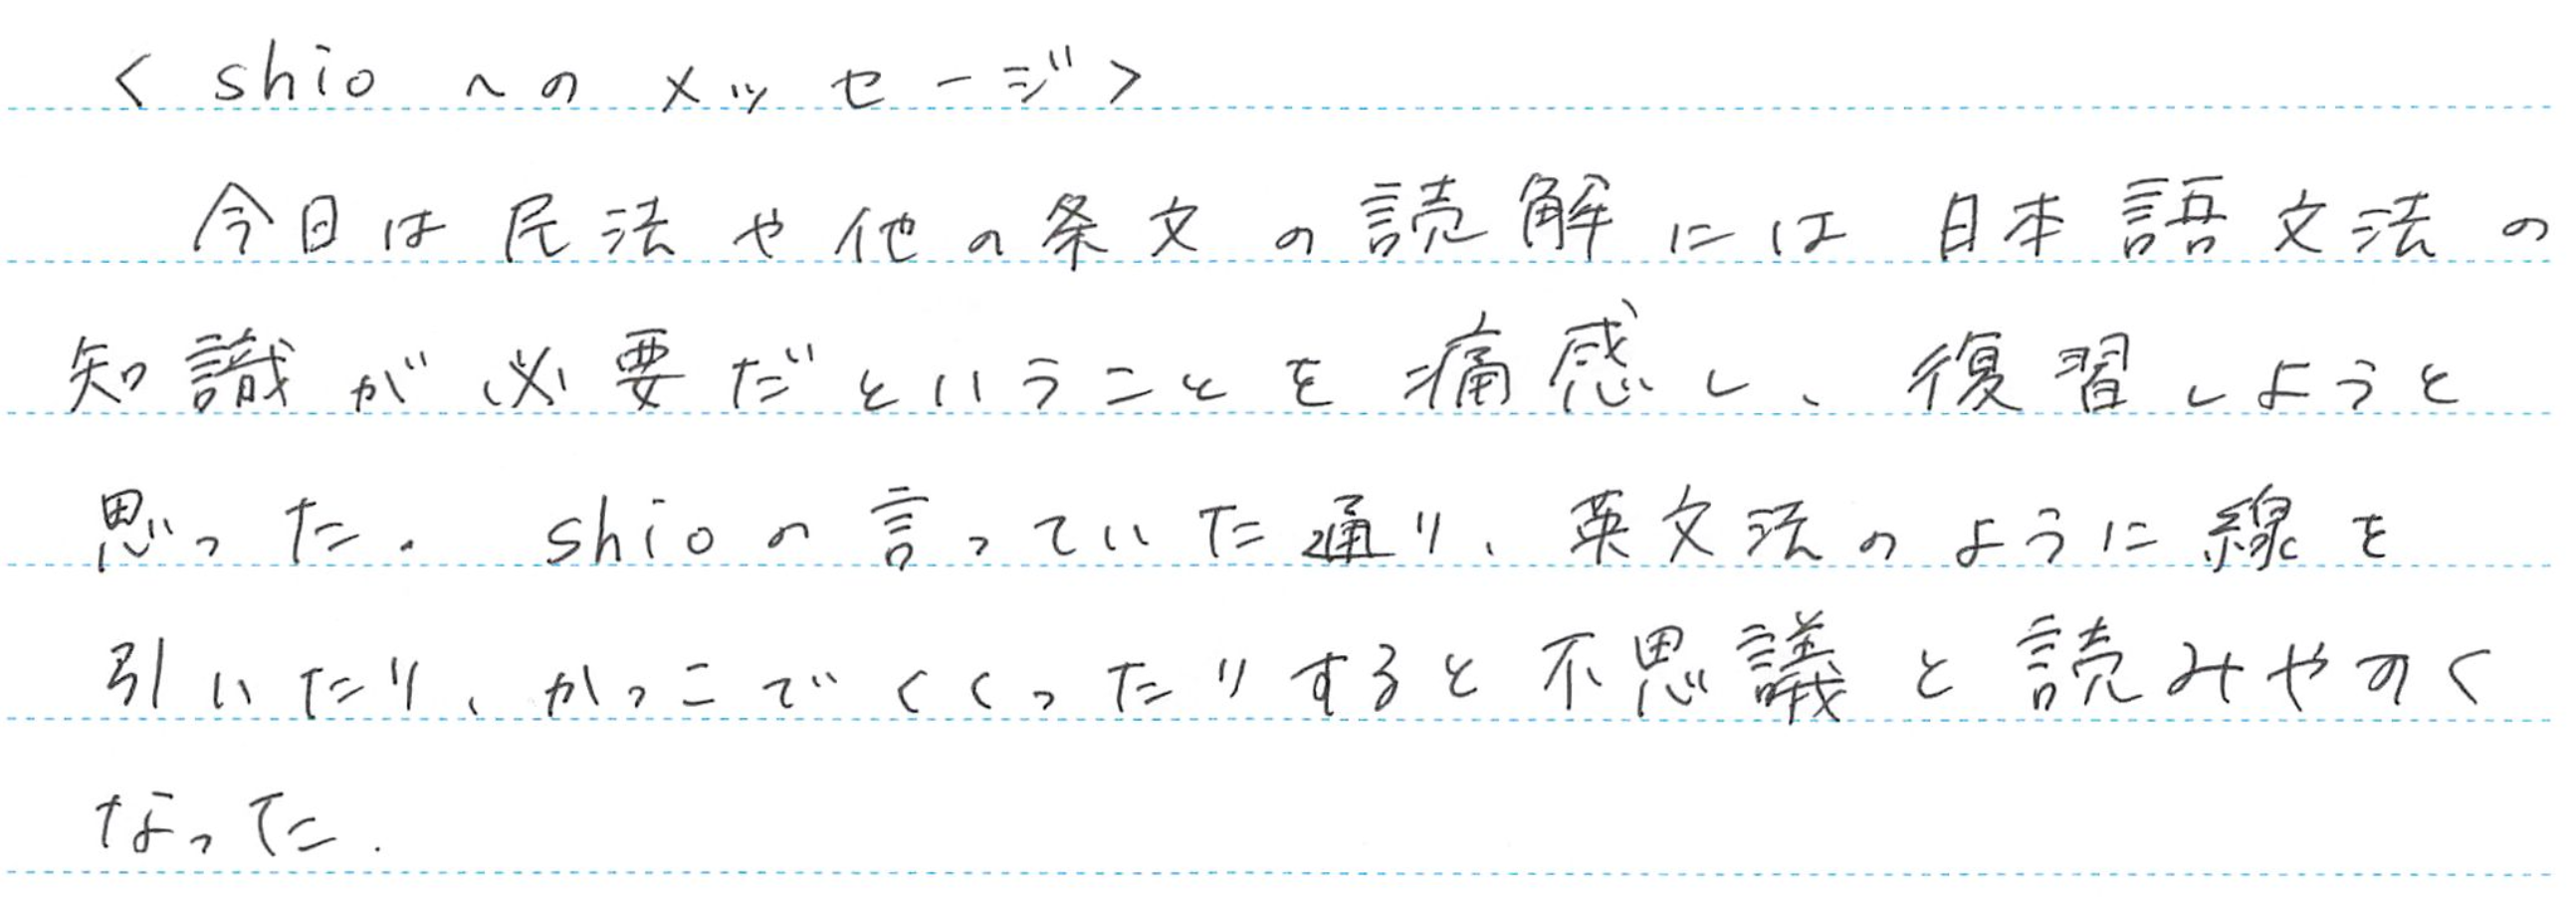 < shio へのメッセージ>
今日は民法や他の条文の読解には日本語文法の
知識が必要だということを痛感し、復習しようと
思った. shioの言っていた通り、英文法のように線を
引いたり、かっこでくくったりすると不思議と読みやすく
なった.